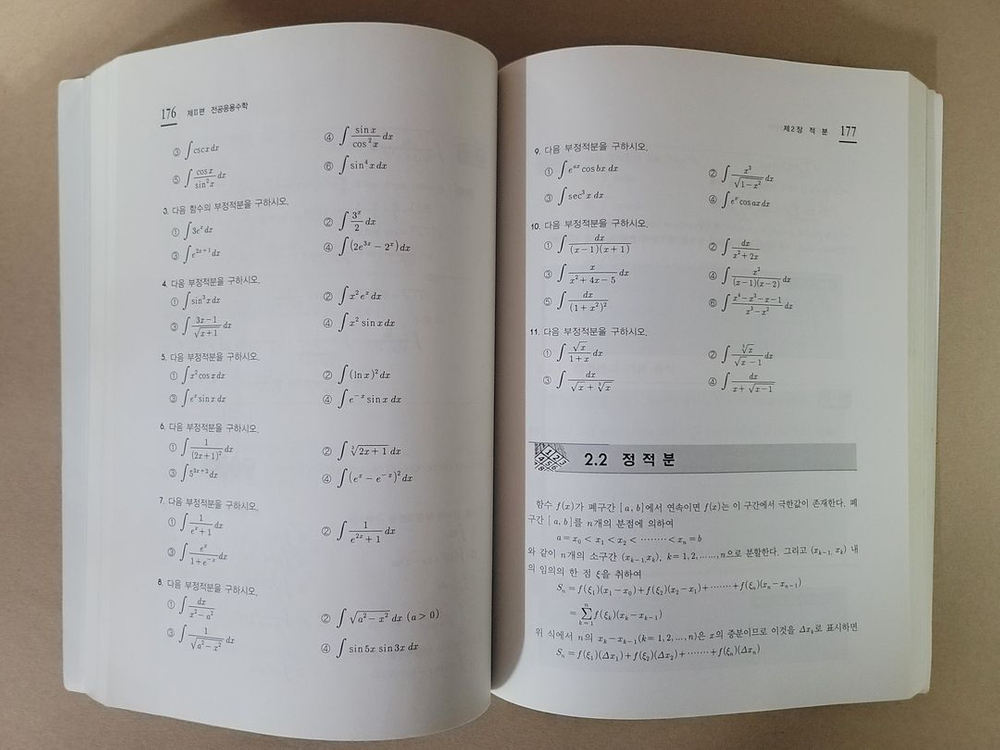 176 제Ⅱ편 전공응용수학
③ ∫csc x dx ④ ∫ sin x / cos²x dx
⑤ ∫ cos x / sin²x dx ⑥ ∫sin⁴x dx
3. 다음 함수의 부정적분을 구하시오.
① ∫3eˣ dx ② ∫ 3ˣ / 2 dx
③ ∫e²ˣ⁺¹ dx ④ ∫(2e³ˣ − 2ˣ) dx
4. 다음 부정적분을 구하시오.
① ∫sin³x dx ② ∫x²eˣ dx
③ ∫ 3x−1 / √(x+1) dx ④ ∫x² sin x dx
5. 다음 부정적분을 구하시오.
① ∫x² cos x dx ② ∫(ln x)² dx
③ ∫eˣ sin x dx ④ ∫e⁻ˣ sin x dx
6. 다음 부정적분을 구하시오.
① ∫ 1 / (2x+1)² dx ② ∫ ∛(2x+1) dx
③ ∫5³ˣ⁺² dx ④ ∫(eˣ − e⁻ˣ)² dx
7. 다음 부정적분을 구하시오.
① ∫ 1 / (eˣ+1) dx ② ∫ 1 / (e²ˣ+1) dx
③ ∫ eˣ / (1+e⁻ˣ) dx
8. 다음 부정적분을 구하시오.
① ∫ dx / (x²−a²) ② ∫√(a²−x²) dx (a>0)
③ ∫ 1 / √(a²−x²) dx ④ ∫sin 5x sin 3x dx
제2장 적 분 177
9. 다음 부정적분을 구하시오.
① ∫eᵃˣ cos bx dx ② ∫ x³ / √(1−x²) dx
③ ∫sec³x dx ④ ∫eˣ cos ax dx
10. 다음 부정적분을 구하시오.
① ∫ dx / (x−1)(x+1) ② ∫ dx / (x²+2x)
③ ∫ x / (x²+4x−5) dx ④ ∫ x² / (x−1)(x−2) dx
⑤ ∫ dx / (1+x²)² ⑥ ∫ (x⁴−x³−x−1) / (x³−x²) dx
11. 다음 부정적분을 구하시오.
① ∫ √x / (1+x) dx ② ∫ ∛x / (√x−1) dx
③ ∫ dx / (√x+∛x) ④ ∫ dx / (x+√(x−1))
2.2 정적분
함수 f(x)가 폐구간 [a, b]에서 연속이면 f(x)는 이 구간에서 극한값이 존재한다. 폐
구간 [a, b]를 n개의 분점에 의하여
a = x₀ < x₁ < x₂ < ········ < xₙ = b
와 같이 n개의 소구간 (xₖ₋₁, xₖ), k = 1, 2, ......, n으로 분할한다. 그리고 (xₖ₋₁, xₖ) 내
의 임의의 한 점 ξ을 취하여
Sₙ = f(ξ₁)(x₁−x₀)+f(ξ₂)(x₂−x₁)+········+f(ξₙ)(xₙ−xₙ₋₁)
= ∑ₖ₌₁ⁿ f(ξₖ)(xₖ−xₖ₋₁)
위 식에서 n의 xₖ−xₖ₋₁(k = 1, 2, ..., n)은 x의 증분이므로 이것을 Δxₖ로 표시하면
Sₙ = f(ξ₁)(Δx₁)+f(ξ₂)(Δx₂)+········+f(ξₙ)(Δxₙ)